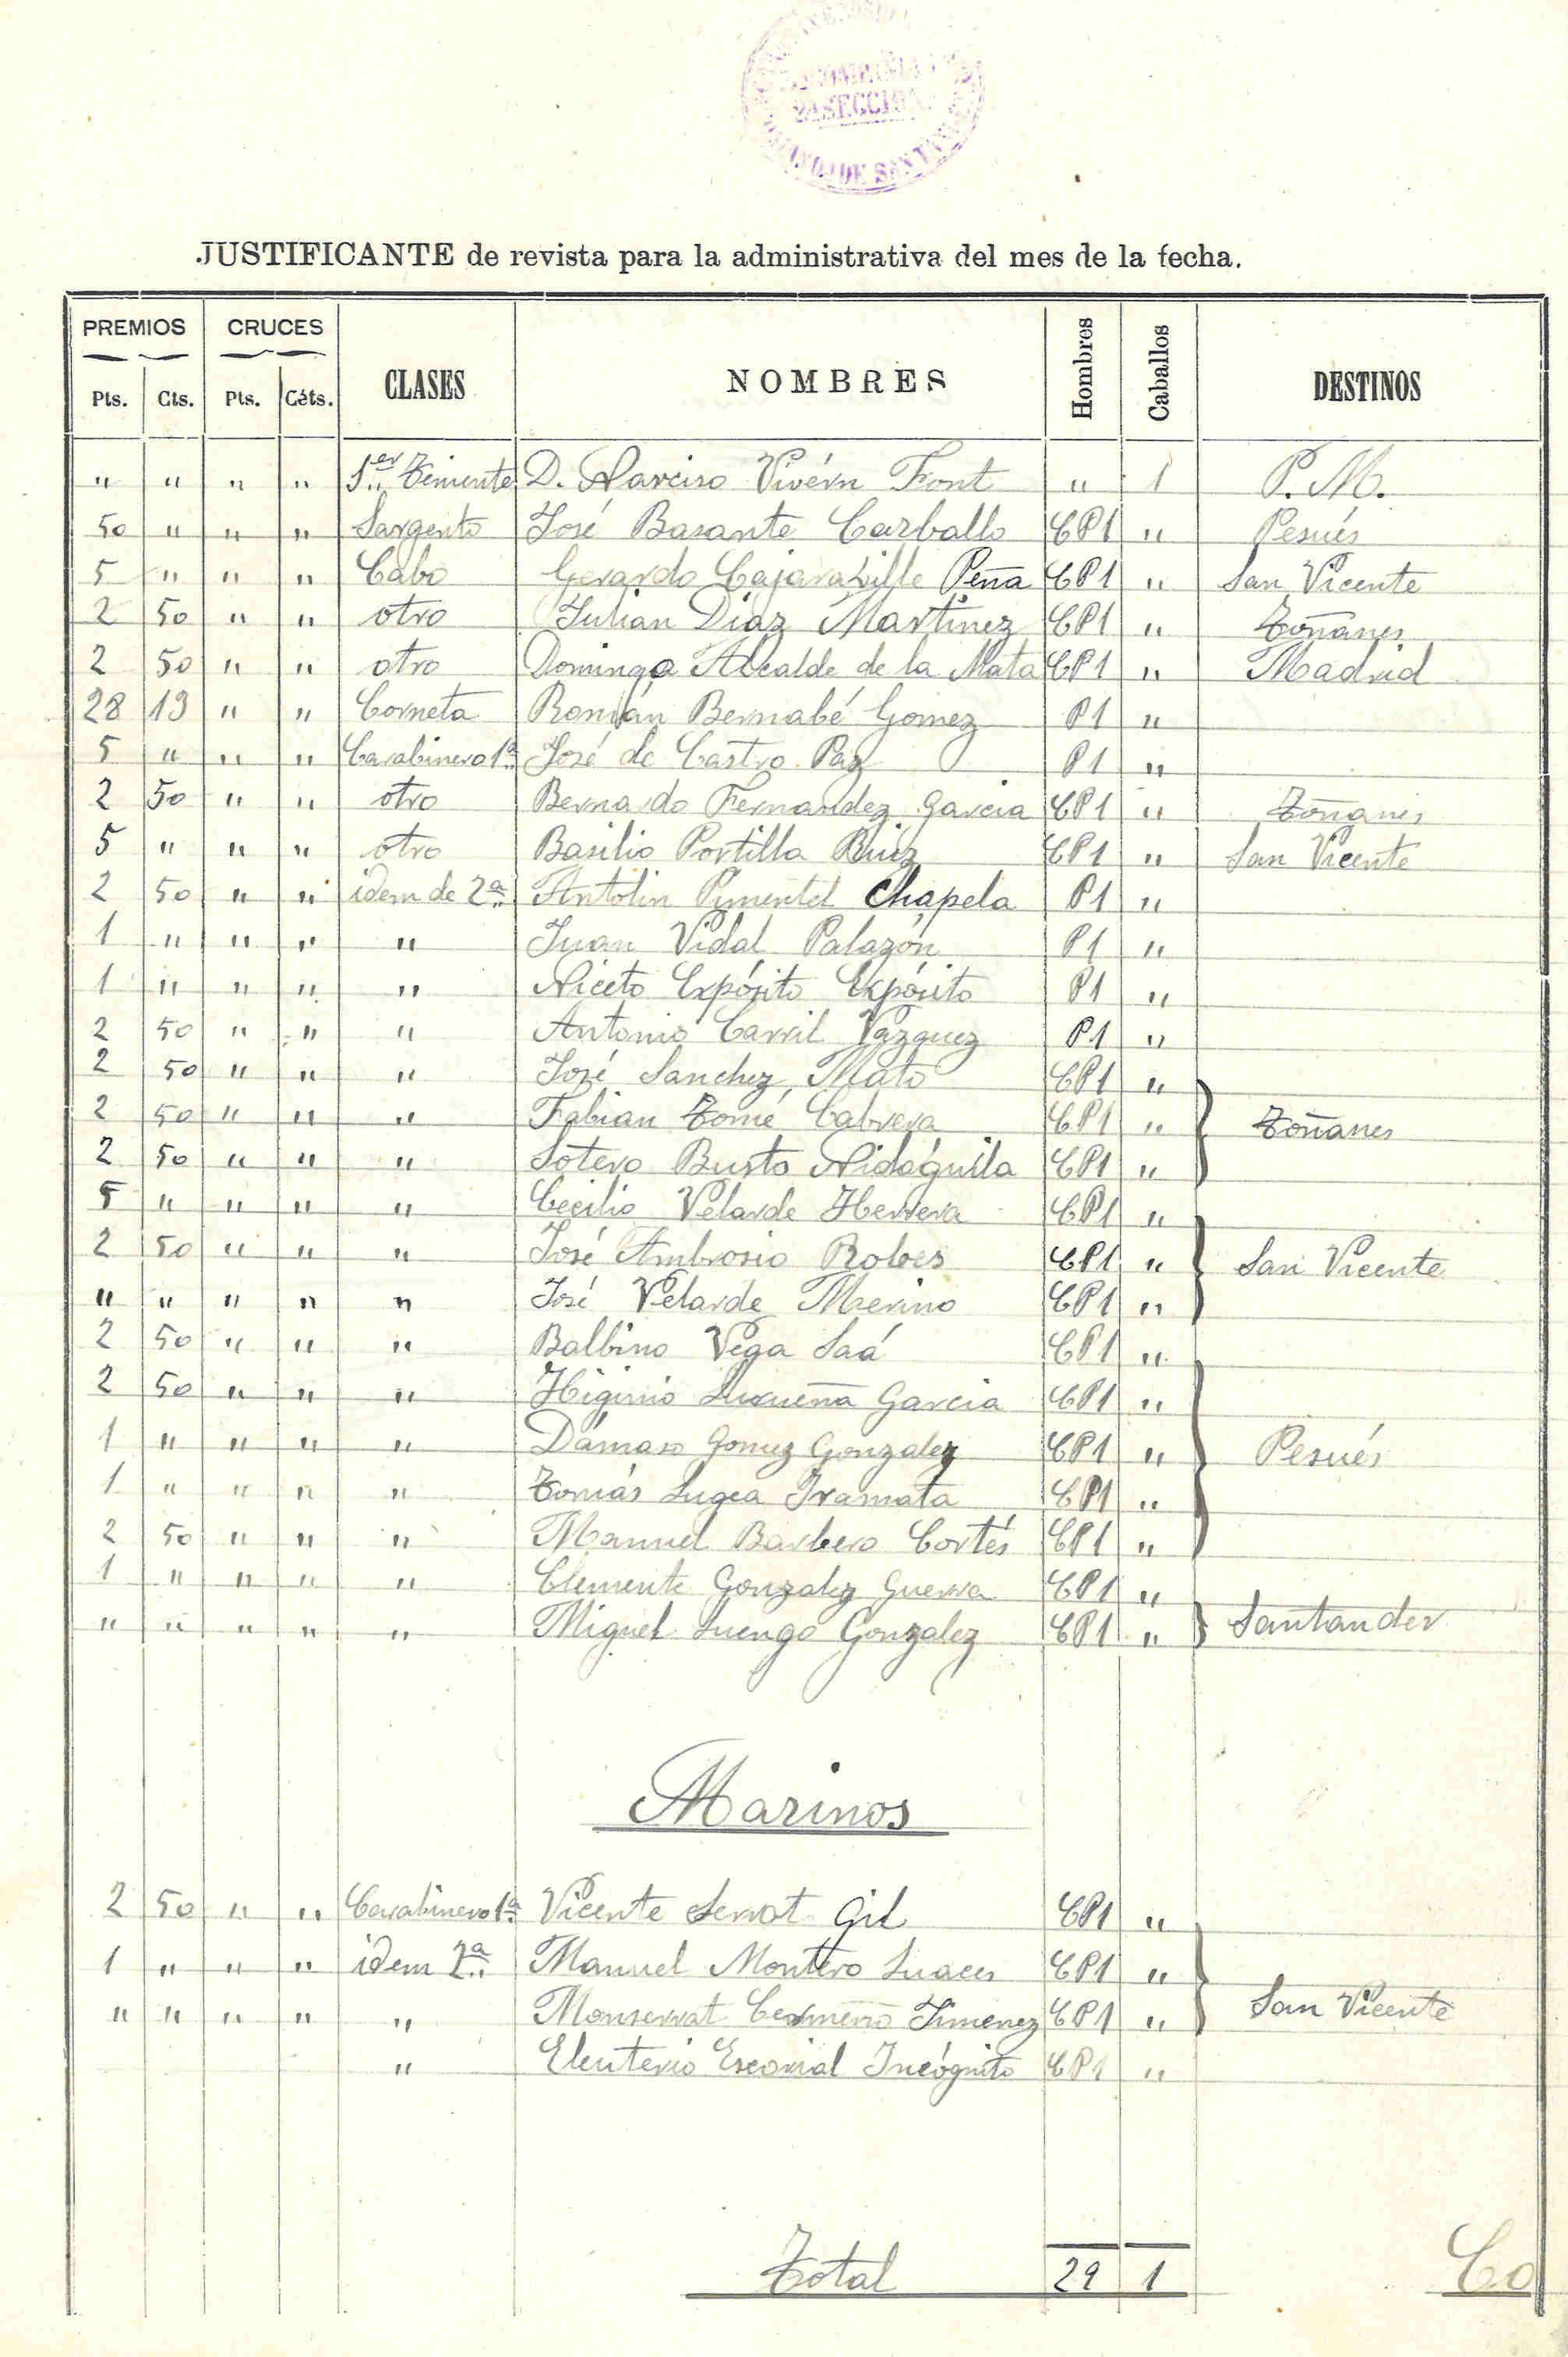 COMPAÑIA
SECCION
DE SANTANDER
JUSTIFICANTE de revista para la administrativa del mes de la fecha.
PREMIOS CRUCES CLASES NOMBRES Hombres Caballos DESTINOS
Pts. Cts. Pts. Céts.
" " " " 1er Teniente D. Narciso Vivérn Font " 1 P. M.
50 " " " Sargento José Basante Carballo CP1 " Pesués
5 " " " Cabo Gerardo Cajaraville Peña CP1 " San Vicente
2 50 " " otro Julian Diaz Martinez CP1 " Toñanes
2 50 " " otro Domingo Alcalde de la Mata CP1 " Madrid
28 13 " " Corneta Román Bernabé Gomez P1 "
5 " " " Carabinero 1ª José de Castro Paz P1 "
2 50 " " otro Bernardo Fernandez Garcia CP1 " Toñanes
5 " " " otro Basilio Portilla Ruiz CP1 " San Vicente
2 50 " " idem de 2ª Antolin Pimentel Chapela P1 "
1 " " " " Juan Vidal Palazón P1 "
1 " " " " Niceto Expósito Expósito P1 "
2 50 " " " Antonio Carril Vazquez P1 "
2 50 " " " José Sanchez Mato CP1 "
2 50 " " " Fabian Tomé Cabrera CP1 " Toñanes
2 50 " " " Sotero Busto Nidáguila CP1 "
5 " " " " Cecilio Velarde Herrera CP1 "
2 50 " " " José Ambrosio Robes CP1 " San Vicente
" " " " " José Velarde Merino CP1 "
2 50 " " " Balbino Vega Saá CP1 "
2 50 " " " Higinio Luxueña Garcia CP1 "
1 " " " " Dámaso Gomez Gonzalez CP1 " Pesués
1 " " " " Tomás Lugea Iramata CP1 "
2 50 " " " Manuel Barbero Cortés CP1 "
1 " " " " Clemente Gonzalez Guerra CP1 "
" " " " " Miguel Luengo Gonzalez CP1 " Santander
Marinos
2 50 " " Carabinero 1ª Vicente Serrat Gil CP1 "
1 " " " idem 2ª Manuel Montero Luaces CP1 "
" " " " " Monserrat Cermeño Jimenez CP1 " San Vicente
" Eleuterio Escorial Incógnito CP1 "
Total 29 1
Co